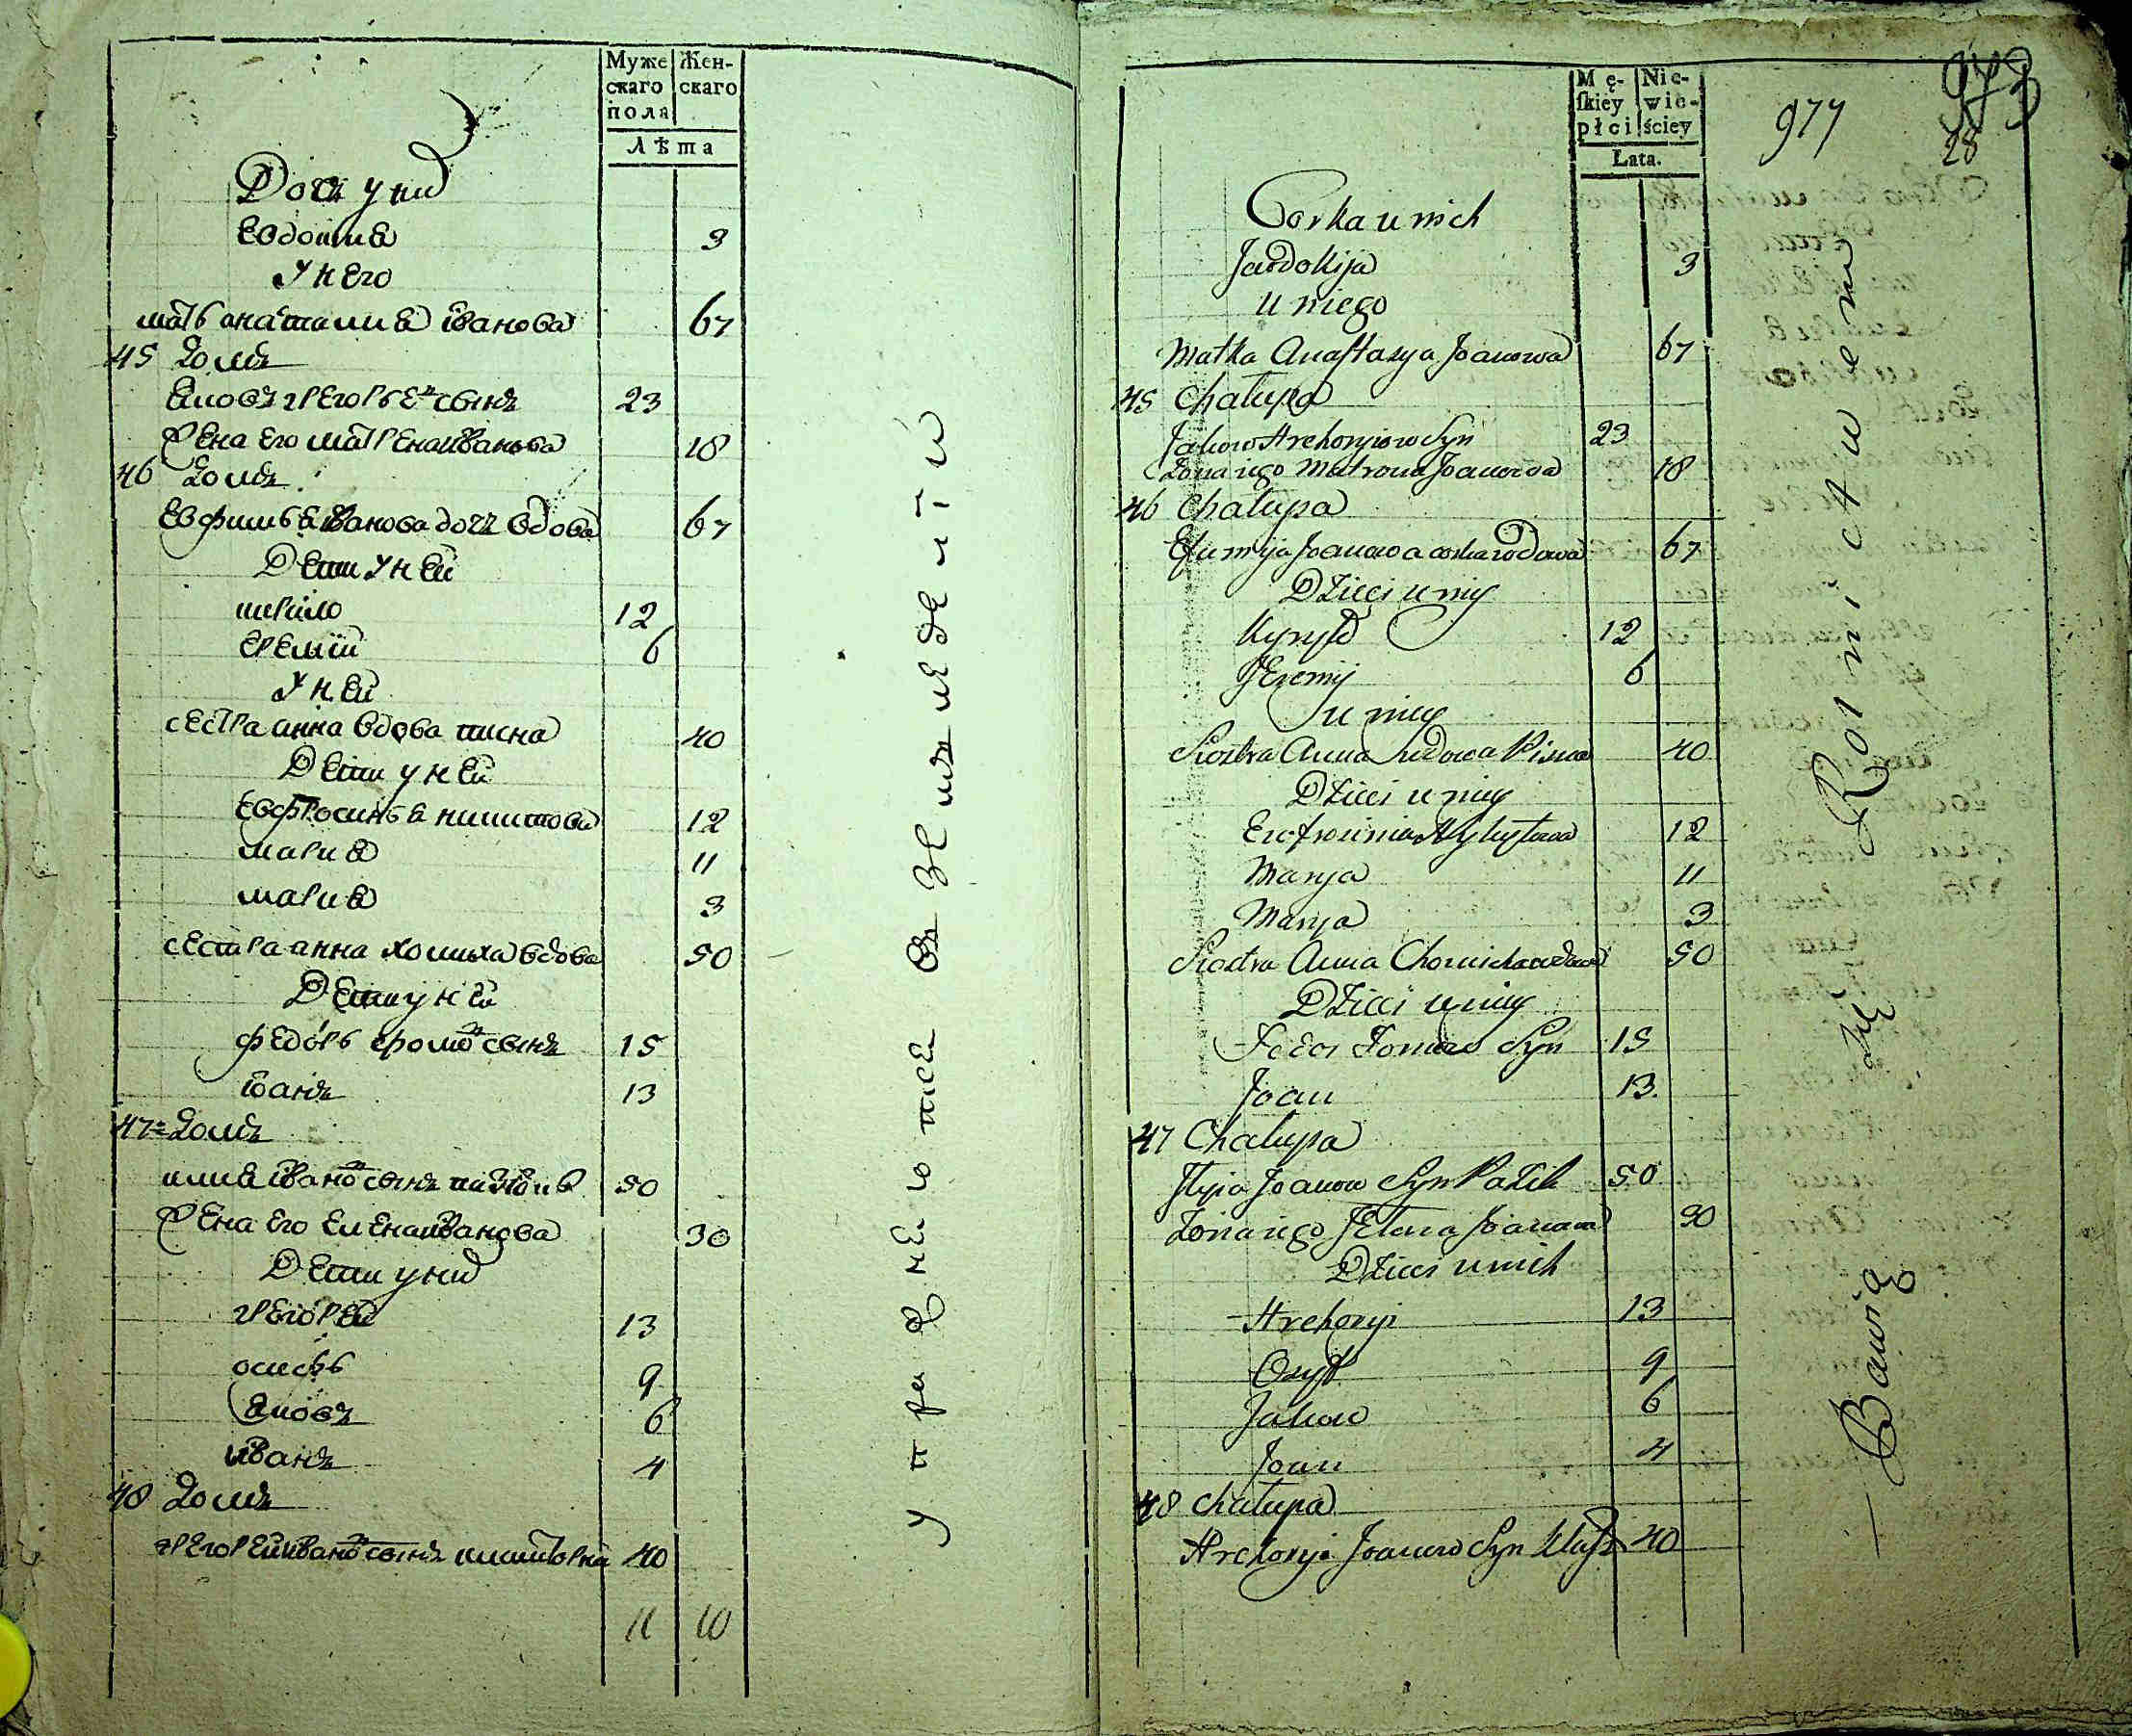 Муже
скаго
пола
Жен-
скаго
Лѣта
Дочь у нихъ
Евдокия 3
У него
мать анастасия иванова 67
45 домъ
яковъ грегорьевъ сынъ 23
жена его матрена иванова 18
46 домъ
Евфимья иванова дочь вдова 67
Дети у ней
кирило 12
еремѣй 6
У ней
сестра анна вдова писна 40
Дети у ней
Евфросинья никитова 12
мария 11
мария 3
сестра анна хомиха вдова 50
Дети у ней
федоръ фомовъ сынъ 15
иванъ 13
47 домъ
илия ивановъ сынъ 50
жена его елена иванова 30
Дети у нихъ
грегорей 13
осифъ 9
яковъ 6
иванъ 4
48 домъ
грегорей ивановъ сынъ 40
11 10
упражнението писсе въ земледелїи
Mę-
ſkiey
płci
Nie-
wie-
ściey
Lata.
977
973
28
Corka u nich
Jawdokija 3
u niego
Matka Anastasya Joanowa 67
45 Chałupa
Jakow Hrehoryiow Syn 23
Żona iego Matrona Joanowa 18
46 Chałupa
Efumija Joanowa corka wdowa 67
Dzieci u niey
Kyryło 12
Jeremij 6
u niey
Siostra Anna wdowa Pisna 40
Dzieci u niey
Ewfrosinia Nykytowa 12
Marya 11
Marya 3
Siostra Anna Chomicha wdowa 50
Dzieci u niey
Fedor Tomów Syn 15
Joan 13.
47 Chałupa
Jlyia Joanow Syn Pazik 50
Żona iego Jelena Joanowa 30
Dzieci u nich
Hrehoryi 13
Osyf 9
Jakow 6
Joan 4
48 Chałupa
Hrehoryi Joanow Syn 40
— Bawią się Rolnictwem